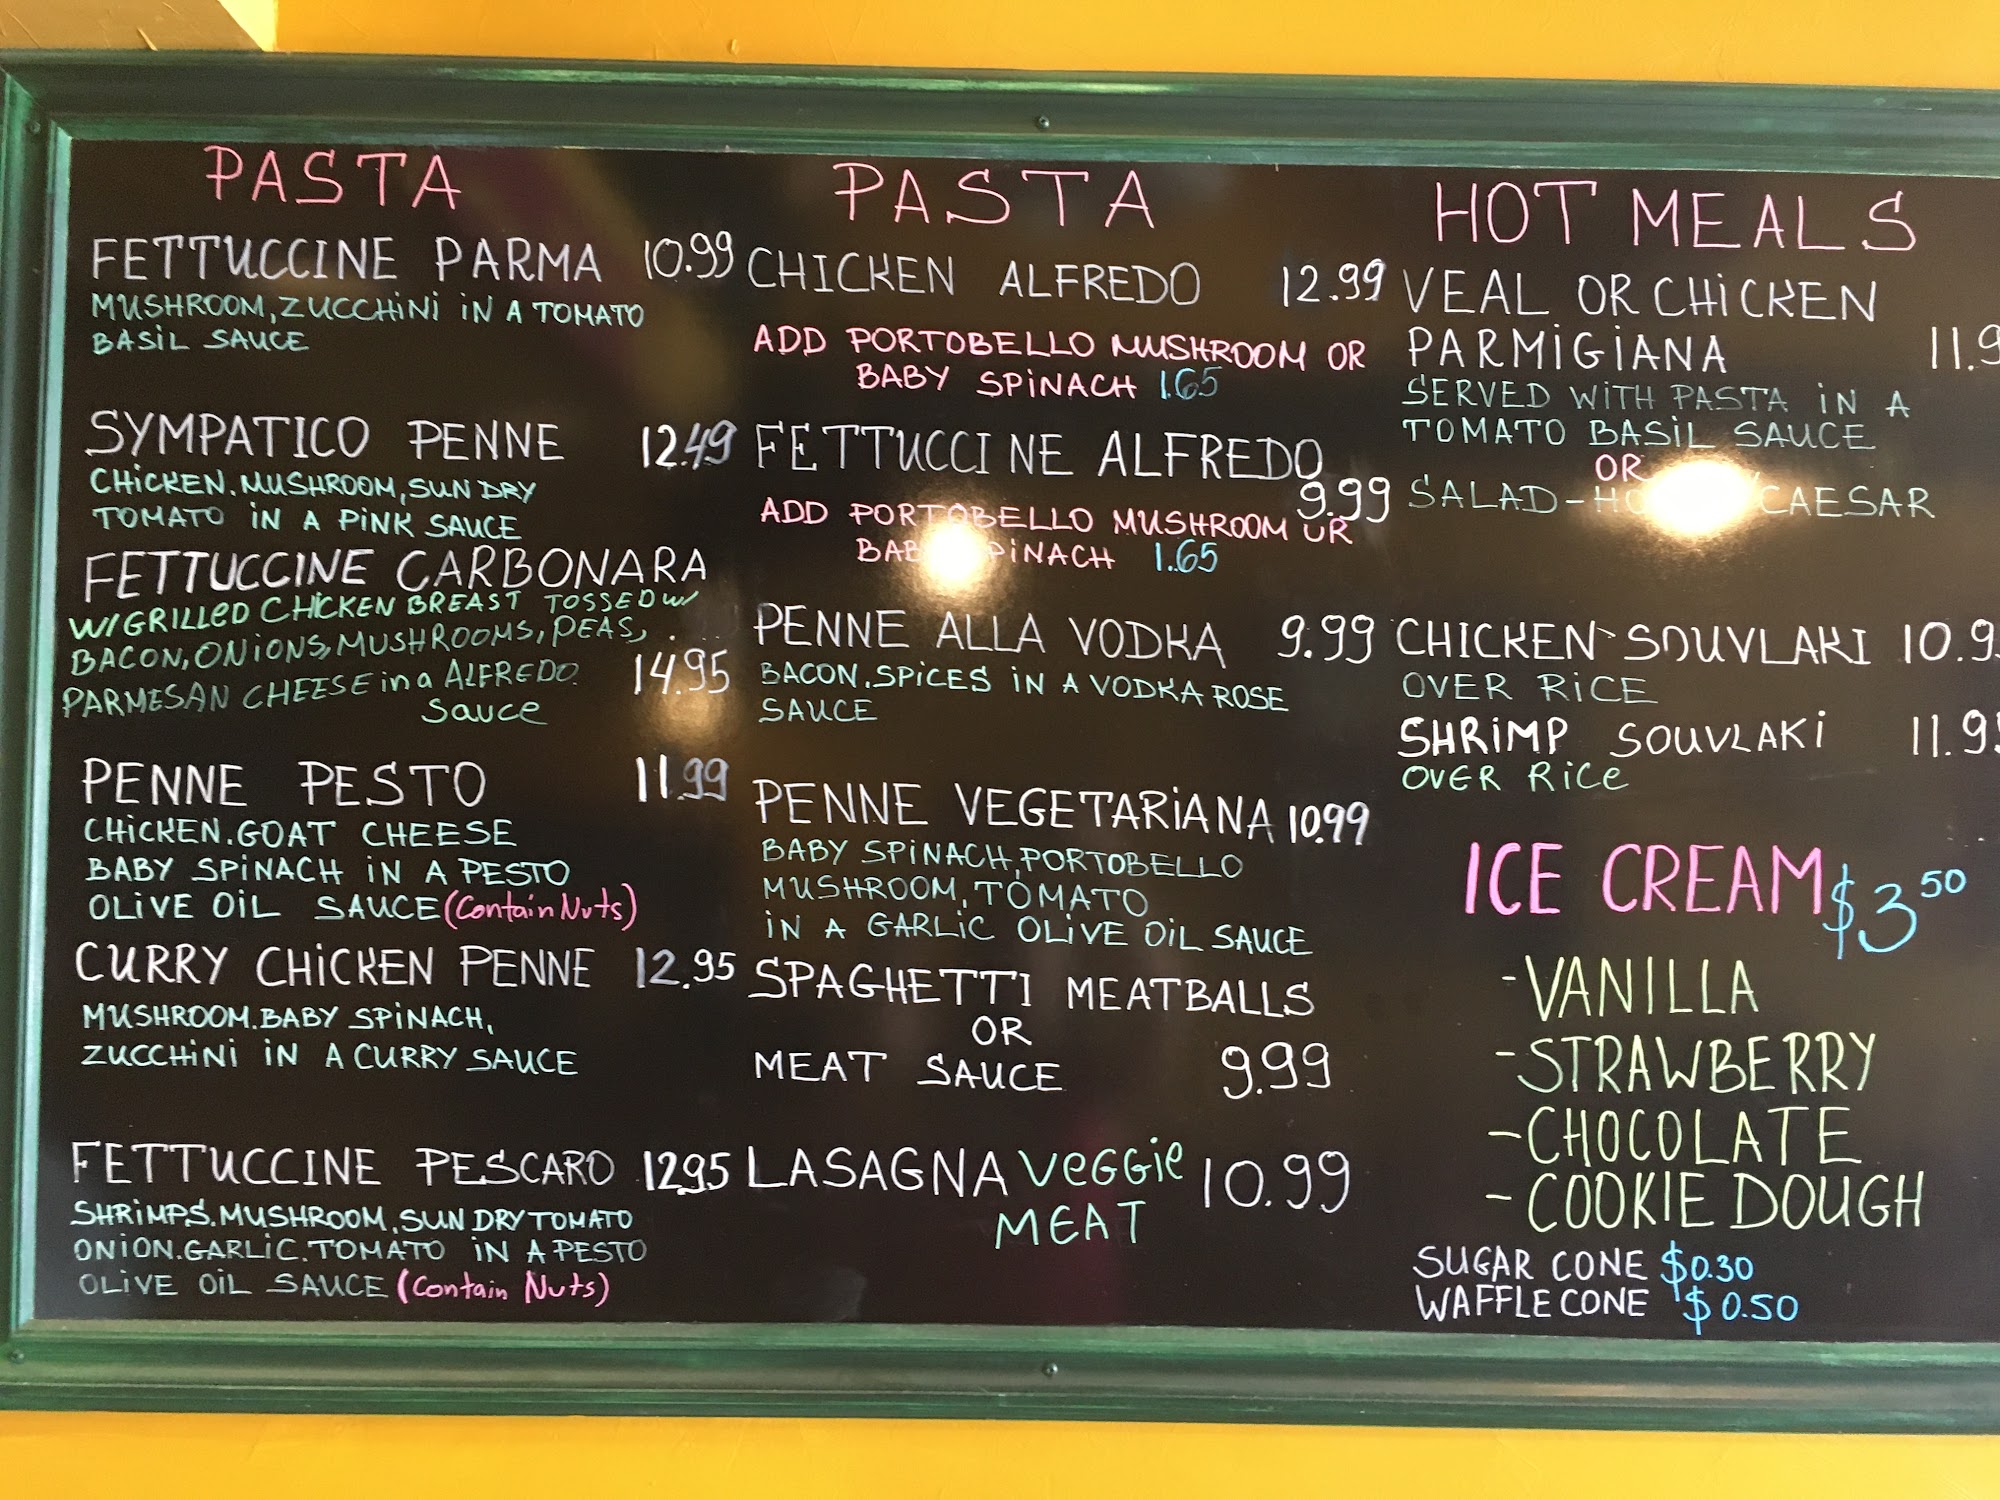 PASTA
FETTUCCINE PARMA 10.99
MUSHROOM, ZUCCHINI IN A TOMATO
BASIL SAUCE
SYMPATICO PENNE 12.49
CHICKEN. MUSHROOM, SUN DRY
TOMATO IN A PINK SAUCE
FETTUCCINE CARBONARA
W/GRILLED CHICKEN BREAST TOSSED W/
BACON, ONIONS, MUSHROOMS, PEAS,
PARMESAN CHEESE in a ALFREDO 14.95
Sauce
PENNE PESTO 11.99
CHICKEN. GOAT CHEESE
BABY SPINACH IN A PESTO
OLIVE OIL SAUCE (Contain Nuts)
CURRY CHICKEN PENNE 12.95
MUSHROOM. BABY SPINACH,
ZUCCHINI IN A CURRY SAUCE
FETTUCCINE PESCARO 12.95
SHRIMPS. MUSHROOM, SUN DRY TOMATO
ONION. GARLIC. TOMATO IN A PESTO
OLIVE OIL SAUCE (Contain Nuts)
PASTA
CHICKEN ALFREDO 12.99
ADD PORTOBELLO MUSHROOM OR
BABY SPINACH 1.65
FETTUCCINE ALFREDO
9.99
ADD PORTOBELLO MUSHROOM OR
BABY SPINACH 1.65
PENNE ALLA VODKA 9.99
BACON. SPICES IN A VODKA ROSE
SAUCE
PENNE VEGETARIANA 10.99
BABY SPINACH, PORTOBELLO
MUSHROOM, TOMATO
IN A GARLIC OLIVE OIL SAUCE
SPAGHETTI MEATBALLS
OR
MEAT SAUCE 9.99
LASAGNA VEGGIE 10.99
MEAT
HOT MEALS
VEAL OR CHICKEN
PARMIGIANA 11.9
SERVED WITH PASTA IN A
TOMATO BASIL SAUCE
OR
SALAD - CAESAR
CHICKEN SOUVLAKI 10.9
OVER RICE
SHRIMP SOUVLAKI 11.9
OVER RICE
ICE CREAM $3.50
- VANILLA
- STRAWBERRY
- CHOCOLATE
- COOKIE DOUGH
SUGAR CONE $0.30
WAFFLE CONE $0.50